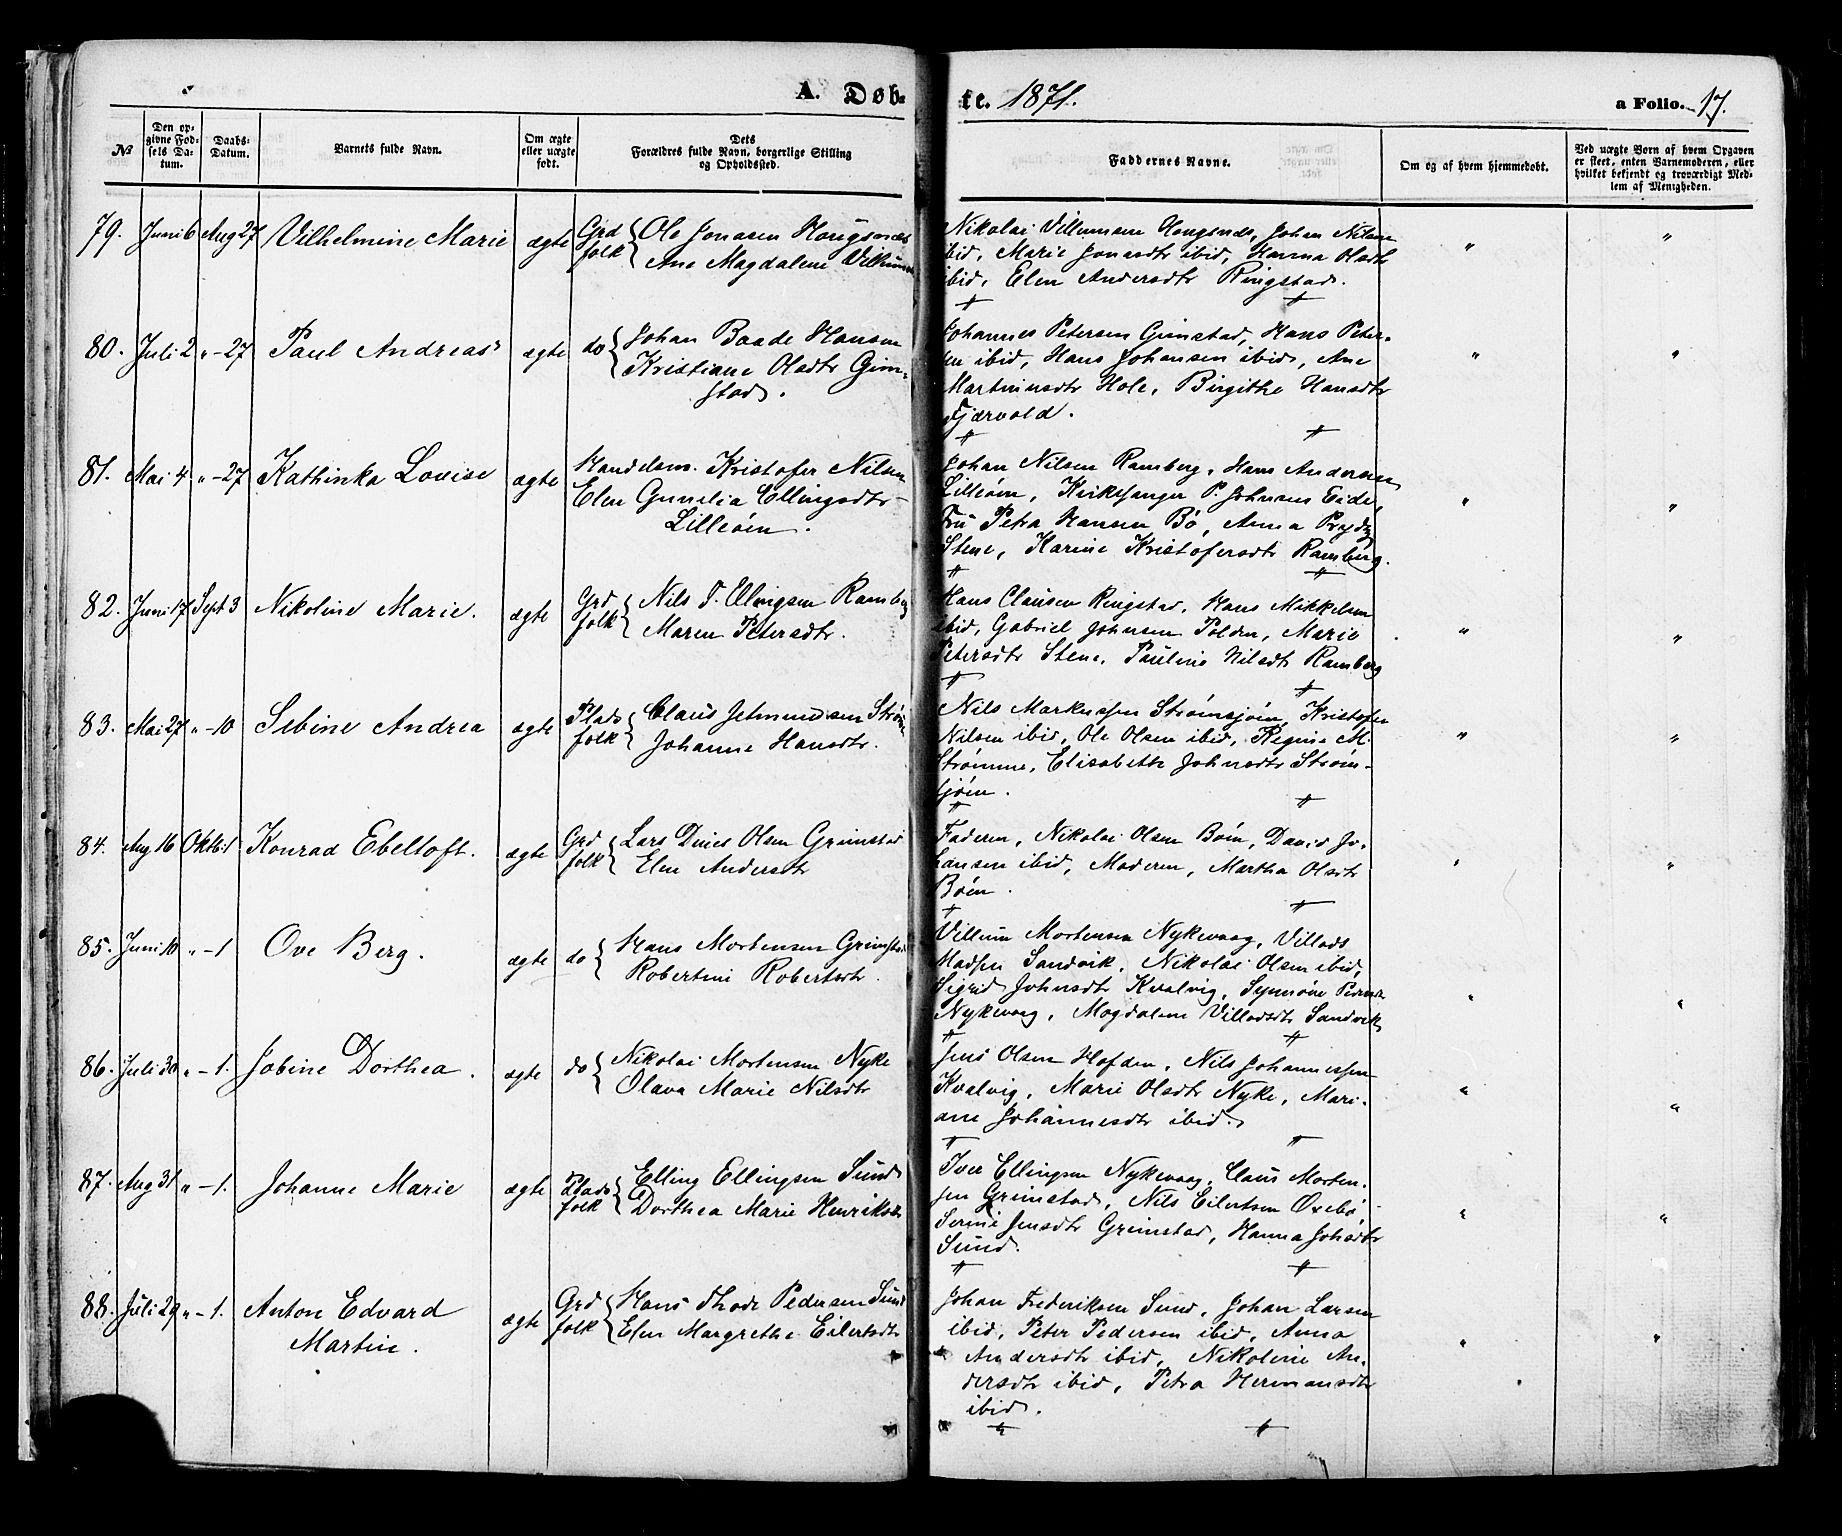 A. Døb-
te. 1871.
a Folio. 17.
№
Den op-
givne Fød-
sels Da-
tum.
Daabs-
Datum.
Barnets fulde Navn.
Om ægte
eller uægte
født.
Dets
Forældres fulde Navn, borgerlige Stilling
og Opholdssted.
Faddernes Navne.
Om og af hvem hjemmedøbt.
Ved uægte Børn af hvem Opgaven
er skeet, enten Barnemoderen, eller
hvilket bekjendt og troværdigt Med-
lem af Menigheden.
79. Juni 6 Aug 27 Vilhelmine Marie ægte Grd folk
Ole Jonasen Hougsnæs
Ane Magdalene Vellums
Nikolai Villumsen Hougsnæs, Johan Nilsen
ibid, Marie Jonasdtr ibid, Hanna Olsdtr
ibid, Elen Andersdtr Ringstad.
80. Juli 2 " - 27 Paul Andreas ægte do
Johan Baade Hansen
Kristiane Olsdtr Grim-
stad.
Johannes Petersen Grimstad, Hans Peter-
sen ibid, Hans Johansen ibid, Ane
Martinusdtr Hole, Birgithe Hansdtr
Fjærvold.
81. Mai 4 " - 27 Kathinka Lovise ægte
Handelsm. Kristofer Nilsen
Elen Gunelia Ellingsdtr
Lilleöen.
Johan Nilsen Ramberg, Hans Andersen
Lilleöen, Kirkesanger P. Johnsen Eide,
Fru Petra Hansen Bö, Anna Prydz
Stene, Karine Kristofersdtr Ramberg.
82. Juni 17 Sept 3 Nikoline Marie. ægte Grd folk
Nils T. Ellingsen Ramberg
Maren Petersdtr.
Hans Clausen Ringstad, Hans Mikkelsen
ibid, Gabriel Johnsen Polden, Marie
Petersdtr Stene, Pauline Nilsdtr Ramberg
83. Mai 27 " - 10 Sebine Andrea ægte Plads folk
Claus Jetmundsen Ström
Johanne Hansdtr.
Nils Markussen Strömsjöen, Kristofer
Nilsen ibid, Ole Olsen ibid, Regine M.
Strömme, Elisabeth Johnsdtr Ström-
sjöen.
84. Aug 16 Oktb. 1 Konrad Ebeltoft. ægte Grd folk
Lars Dines Olsen Grimstad
Elen Andersdtr
Faderen, Nikolai Olsen Böen, David Jo-
hansen ibid, Moderen, Martha Olsdtr
Böen.
85. Juni 10 " - 1 Ove Berg. ægte do
Hans Mortensen Grimstad
Robertine Robertsdtr.
Villum Mortensen Nykevaag, Villads
Madsen Sandvik, Nikolai Olsen ibid,
Sigrid Johnsdtr Kvalvig, Synnöve Pedersdtr
Nykevaag, Magdalene Villadsdtr Sandvik
86. Juli 30 " - 1. Jobine Dorthea. ægte do
Nikolai Mortensen Nyke
Olava Marie Nilsdtr
Jens Olsen Hofden, Nils Johannessen
Kvalvig, Marie Olsdtr Nyke, Mari-
ane Johannesdtr ibid.
87. Aug 31 " - 1. Johanne Marie ægte Plads folk
Elling Ellingsen Sund
Dorthea Marie Henriksdtr
Iver Ellingsen Nykevaag, Claus Morten-
sen Grimstad, Nils Eilertsen Övebö
Serine Jensdtr Grimstad, Hanna Johsdtr
Sund.
88. Juli 29 " - 1. Anton Edvard
Martin. ægte Grd folk
Hans Thode Pedersen Sund
Elen Margrethe Eilertsdtr
Johan Frederiksen Sund, Johan Larsen
ibid, Peter Pedersen ibid, Anna
Andersdtr ibid, Nikoline An-
dersdtr ibid, Petra Hermansdtr
ibid.